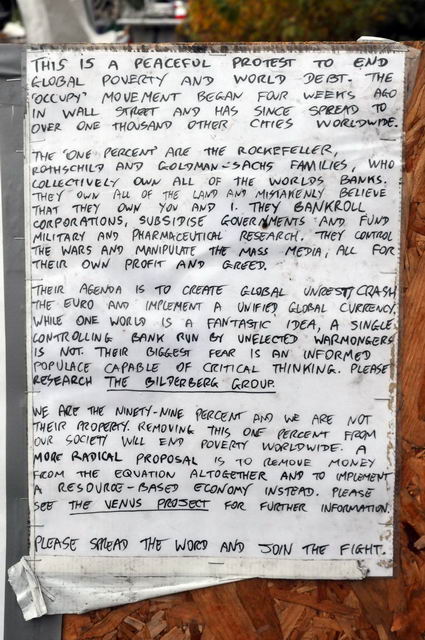 THIS IS A PEACEFUL PROTEST TO END
GLOBAL POVERTY AND WORLD DEBT. THE
'OCCUPY' MOVEMENT BEGAN FOUR WEEKS AGO
IN WALL STREET AND HAS SINCE SPREAD TO
OVER ONE THOUSAND OTHER CITIES WORLDWIDE.
THE 'ONE PERCENT' ARE THE ROCKEFELLER,
ROTHSCHILD AND GOLDMAN-SACHS FAMILIES, WHO
COLLECTIVELY OWN ALL OF THE WORLDS BANKS.
THEY OWN ALL OF THE LAND AND MISTAKENLY BELIEVE
THAT THEY OWN YOU AND I. THEY BANKROLL
CORPORATIONS, SUBSIDISE GOVERNMENTS AND FUND
MILITARY AND PHARMACEUTICAL RESEARCH. THEY CONTROL
THE WARS AND MANIPULATE THE MASS MEDIA; ALL FOR
THEIR OWN PROFIT AND GREED.
THEIR AGENDA IS TO CREATE GLOBAL UNREST, CRASH
THE EURO AND IMPLEMENT A UNIFIED GLOBAL CURRENCY.
WHILE ONE WORLD IS A FANTASTIC IDEA, A SINGLE
CONTROLLING BANK RUN BY UNELECTED WARMONGERS
IS NOT. THEIR BIGGEST FEAR IS AN INFORMED
POPULACE CAPABLE OF CRITICAL THINKING. PLEASE
RESEARCH THE BILDERBERG GROUP.
WE ARE THE NINETY-NINE PERCENT AND WE ARE NOT
THEIR PROPERTY. REMOVING THIS ONE PERCENT FROM
OUR SOCIETY WILL END POVERTY WORLDWIDE. A
MORE RADICAL PROPOSAL IS TO REMOVE MONEY
FROM THE EQUATION ALTOGETHER AND TO IMPLEMENT
A RESOURCE-BASED ECONOMY INSTEAD. PLEASE
SEE THE VENUS PROJECT FOR FURTHER INFORMATION.
PLEASE SPREAD THE WORD AND JOIN THE FIGHT.